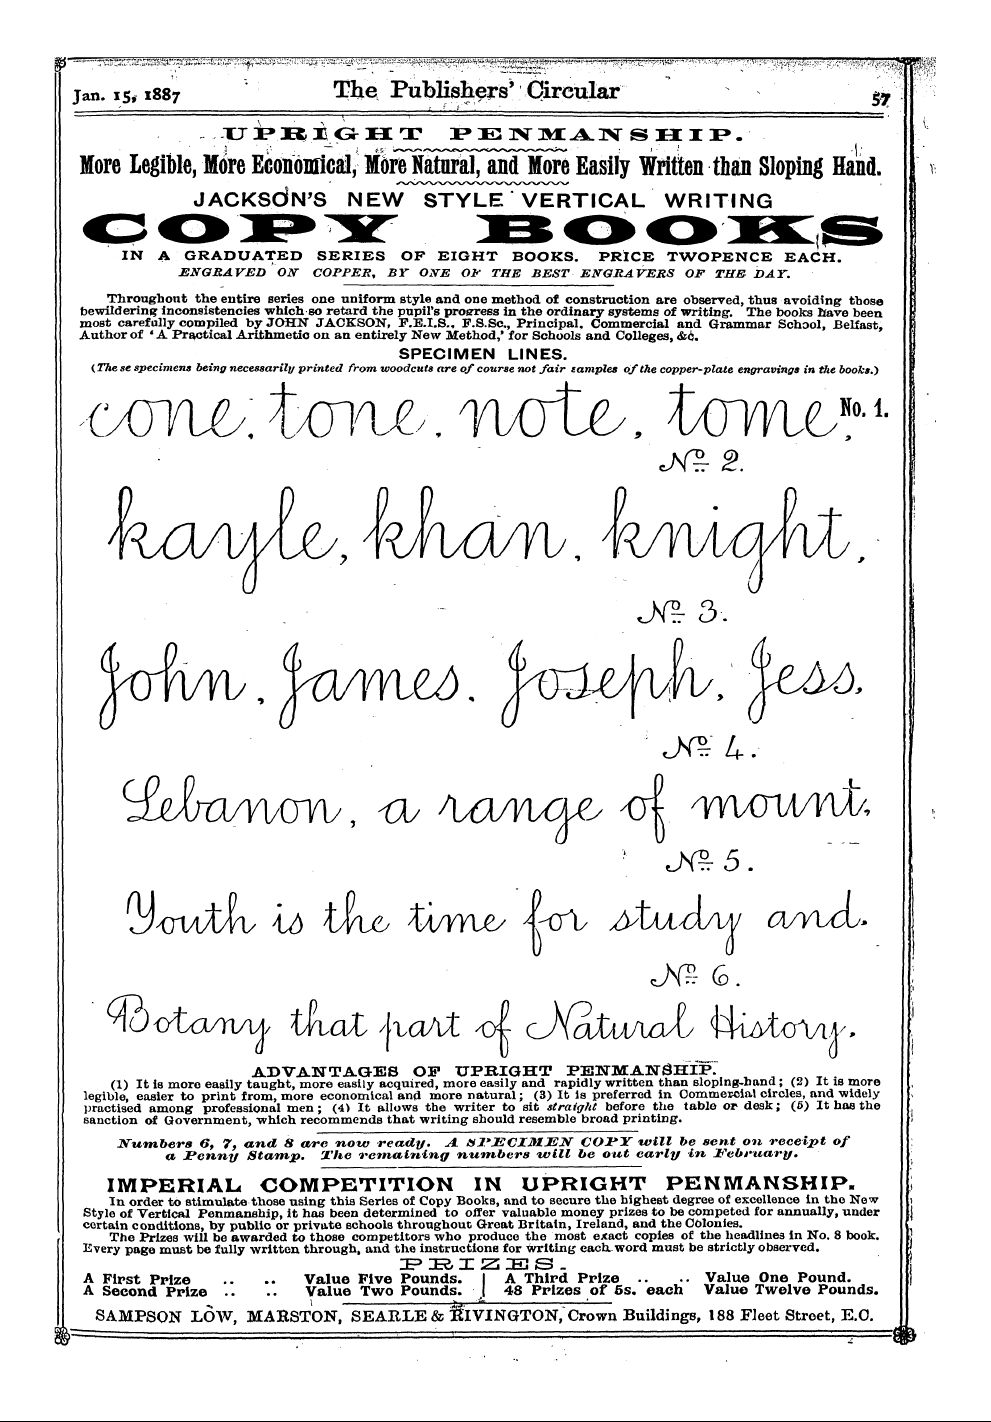 Jan. 15, 1887 The Publishers' Circular 57
UPRIGHT PENMANSHIP.
More Legible, More Economical, More Natural, and More Easily Written than Sloping Hand.
JACKSON'S NEW STYLE VERTICAL WRITING
COPY BOOKS
IN A GRADUATED SERIES OF EIGHT BOOKS. PRICE TWOPENCE EACH.
ENGRAVED ON COPPER, BY ONE OF THE BEST ENGRAVERS OF THE DAY.
Throughout the entire series one uniform style and one method of construction are observed, thus avoiding those
bewildering inconsistencies which so retard the pupil's progress in the ordinary systems of writing. The books have been
most carefully compiled by JOHN JACKSON, F.E.I.S., F.S.Sc., Principal, Commercial and Grammar School, Belfast,
Author of 'A Practical Arithmetic on an entirely New Method,' for Schools and Colleges, &c.
SPECIMEN LINES.
(These specimens being necessarily printed from woodcuts are of course not fair samples of the copper-plate engravings in the books.)
cone, tone, note, tome, No. 1.
No. 2.
kayle, khan, knight,
No. 3.
John, James, Joseph, Jess,
No. 4.
Lebanon, a range of mount,
No. 5.
Youth is the time for study and.
No. 6.
Botany that part of Natural History.
ADVANTAGES OF UPRIGHT PENMANSHIP.
(1) It is more easily taught, more easily acquired, more easily and rapidly written than sloping-hand; (2) It is more
legible, easier to print from, more economical and more natural; (3) It is preferred in Commercial circles, and widely
practised among professional men; (4) It allows the writer to sit straight before the table or desk; (5) It has the
sanction of Government, which recommends that writing should resemble broad printing.
Numbers 6, 7, and 8 are now ready. A SPECIMEN COPY will be sent on receipt of
a Penny Stamp. The remaining numbers will be out early in February.
IMPERIAL COMPETITION IN UPRIGHT PENMANSHIP.
In order to stimulate those using this Series of Copy Books, and to secure the highest degree of excellence in the New
Style of Vertical Penmanship, it has been determined to offer valuable money prizes to be competed for annually, under
certain conditions, by public or private schools throughout Great Britain, Ireland, and the Colonies.
The Prizes will be awarded to those competitors who produce the most exact copies of the headlines in No. 8 book.
Every page must be fully written through, and the instructions for writing each word must be strictly observed.
PRIZES.
A First Prize .. .. Value Five Pounds. | A Third Prize .. .. Value One Pound.
A Second Prize .. .. Value Two Pounds. | 48 Prizes of 5s. each Value Twelve Pounds.
SAMPSON LOW, MARSTON, SEARLE & RIVINGTON, Crown Buildings, 188 Fleet Street, E.C.